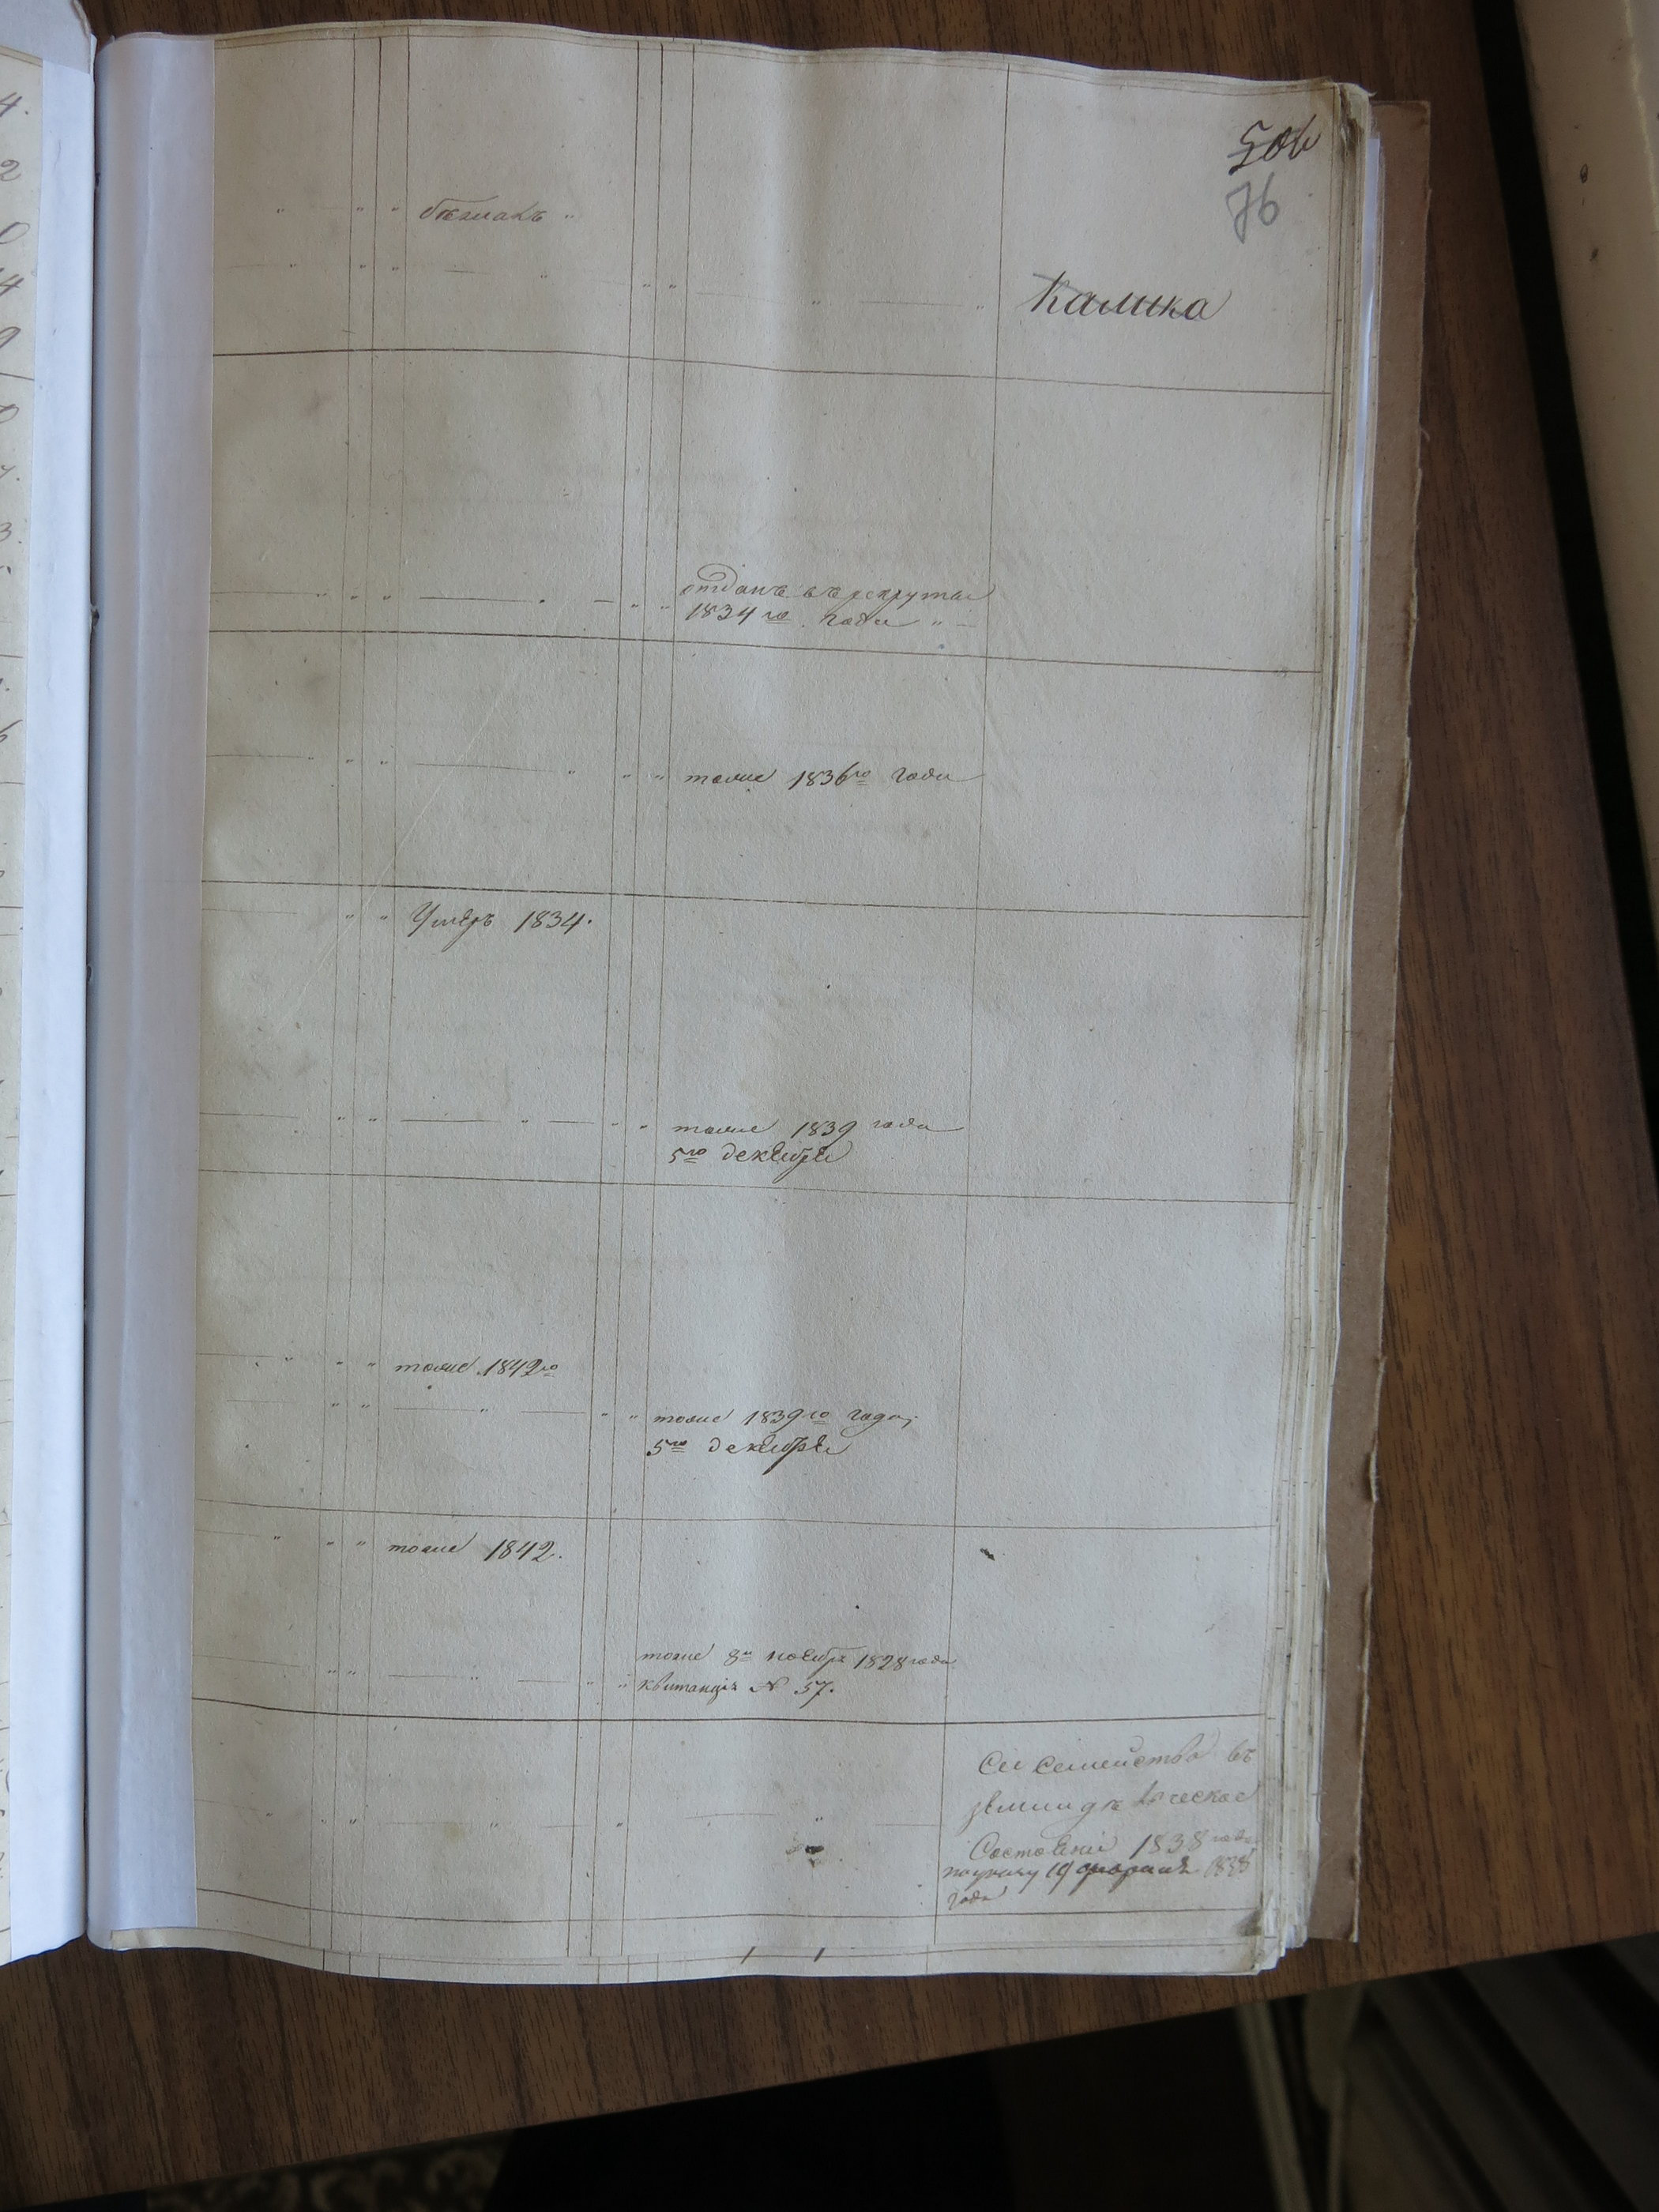 76
бѣглакъ
Калика
отданъ въ рекруты
1834го года
тоже 1836го года
Умеръ 1834.
тоже 1839 года
5го декабря
тоже 1842го
тоже 1839го года,
5го декабря
тоже 1842.
тоже 8го ноября 1828 года
квитанція № 57.
Сіе Семейство въ
земледѣльческое
Состояніи 1838 года
по указу 19 февраля 1838
года